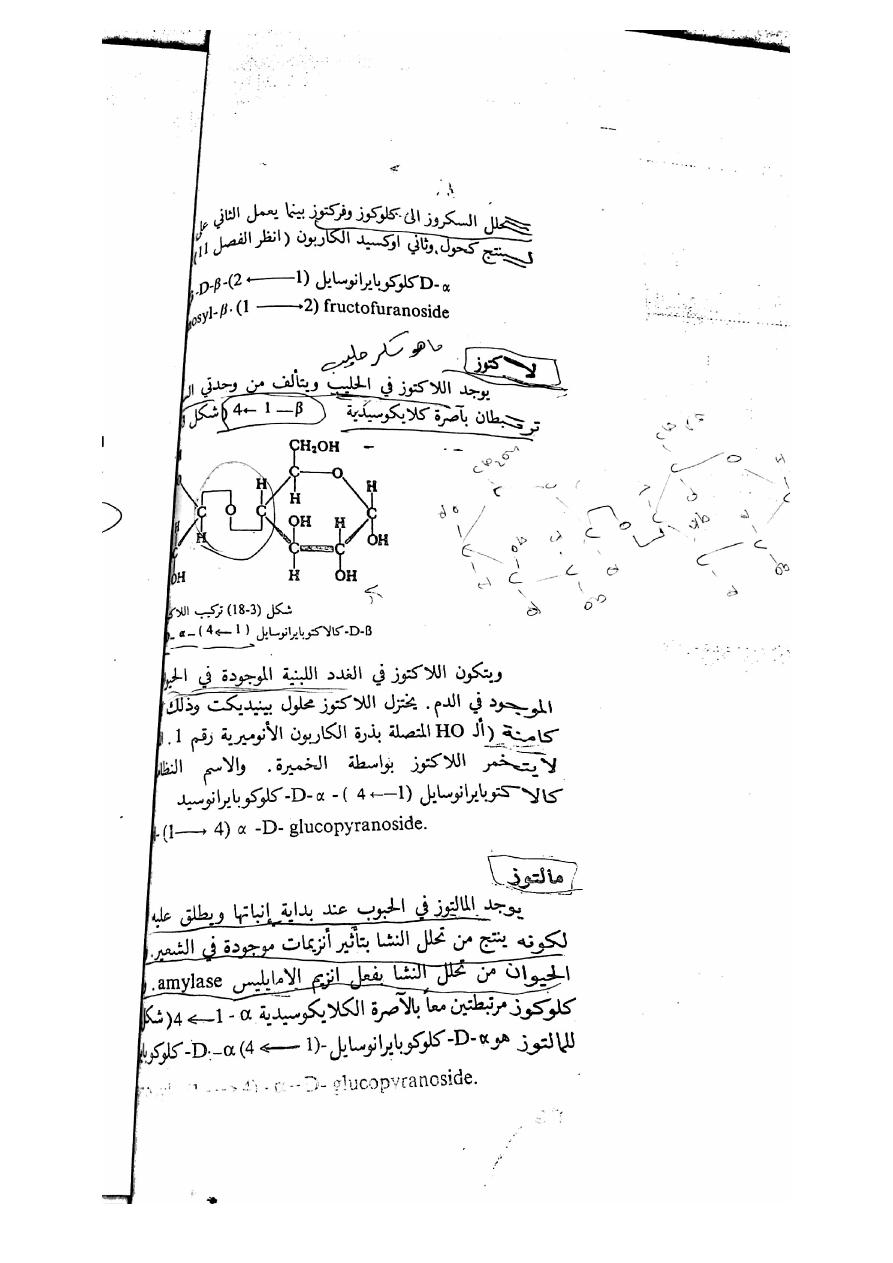 يحلل السكروز الى كلوكوز وفركتوز بينما يعمل الثاني على
لينتج كحول وثاني اوكسيد الكاربون (انظر الفصل 11)
D-α كلوكوبايرانوسايل (1 ⟶ 2)-β-D-
osyl-β·(1 ⟶2) fructofuranoside
لاكتوز
ماهو سكر حليب
يوجد اللاكتوز في الحليب ويتألف من وحدتي
ترتبطان بآصرة كلايكوسيدية β – 1 ← 4 (شكل
CH₂OH
C O
H H H
C O C C
H OH H OH
C C C
OH H OH
شكل (3-18) تركيب اللاكـ
D-β-كالاكتوبايرانوسايل (1 ⟶ 4) – α –
ويتكون اللاكتوز في الغدد اللبنية الموجودة في
الموجود في الدم. يختزل اللاكتوز محلول بينيديكت وذلك
كامنة (ألـ HO المتصلة بذرة الكاربون الأنوميرية رقم 1.
لايتخمر اللاكتوز بواسطة الخميرة. والاسم
كالاكتوبايرانوسايل (1⟶ 4) - D- α-كلوكوبايرانوسيد
(1⟶ 4) α -D- glucopyranoside.
مالتوز
يوجد المالتوز في الحبوب عند بداية إنباتها ويطلق عليه
لكونه ينتج من تحلل النشا بتأثير أنزيمات موجودة في الشعير.
الحيوان من تحلل النشا بفعل انزيم الامايليس amylase.
كلوكوز مرتبطتين معاً بالآصرة الكلايكوسيدية α - 1⟶ 4 (شكل
للمالتوز هو D-α-كلوكوبايرانوسايل-(1 ⟶ 4) D-α-
D- glucopyranoside.